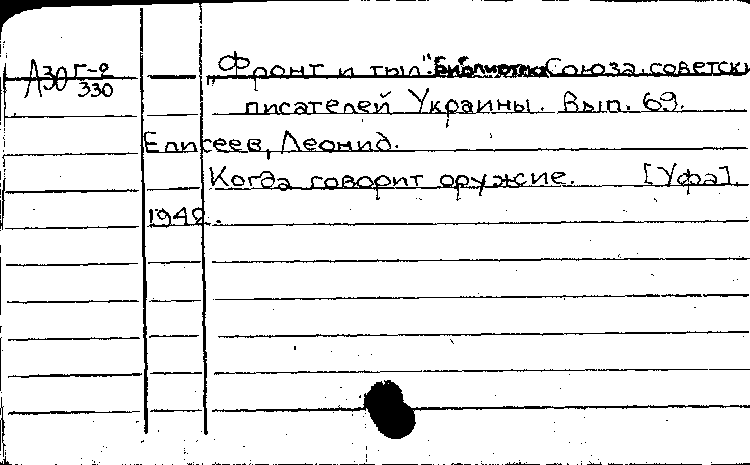 А30 Г-2/330 „Фронт и тыл." Библиотека Союза советски
писателей Украины. Вып. 69.
Елисеев, Леонид.
Когда говорит оружие. [Уфа].
1942.